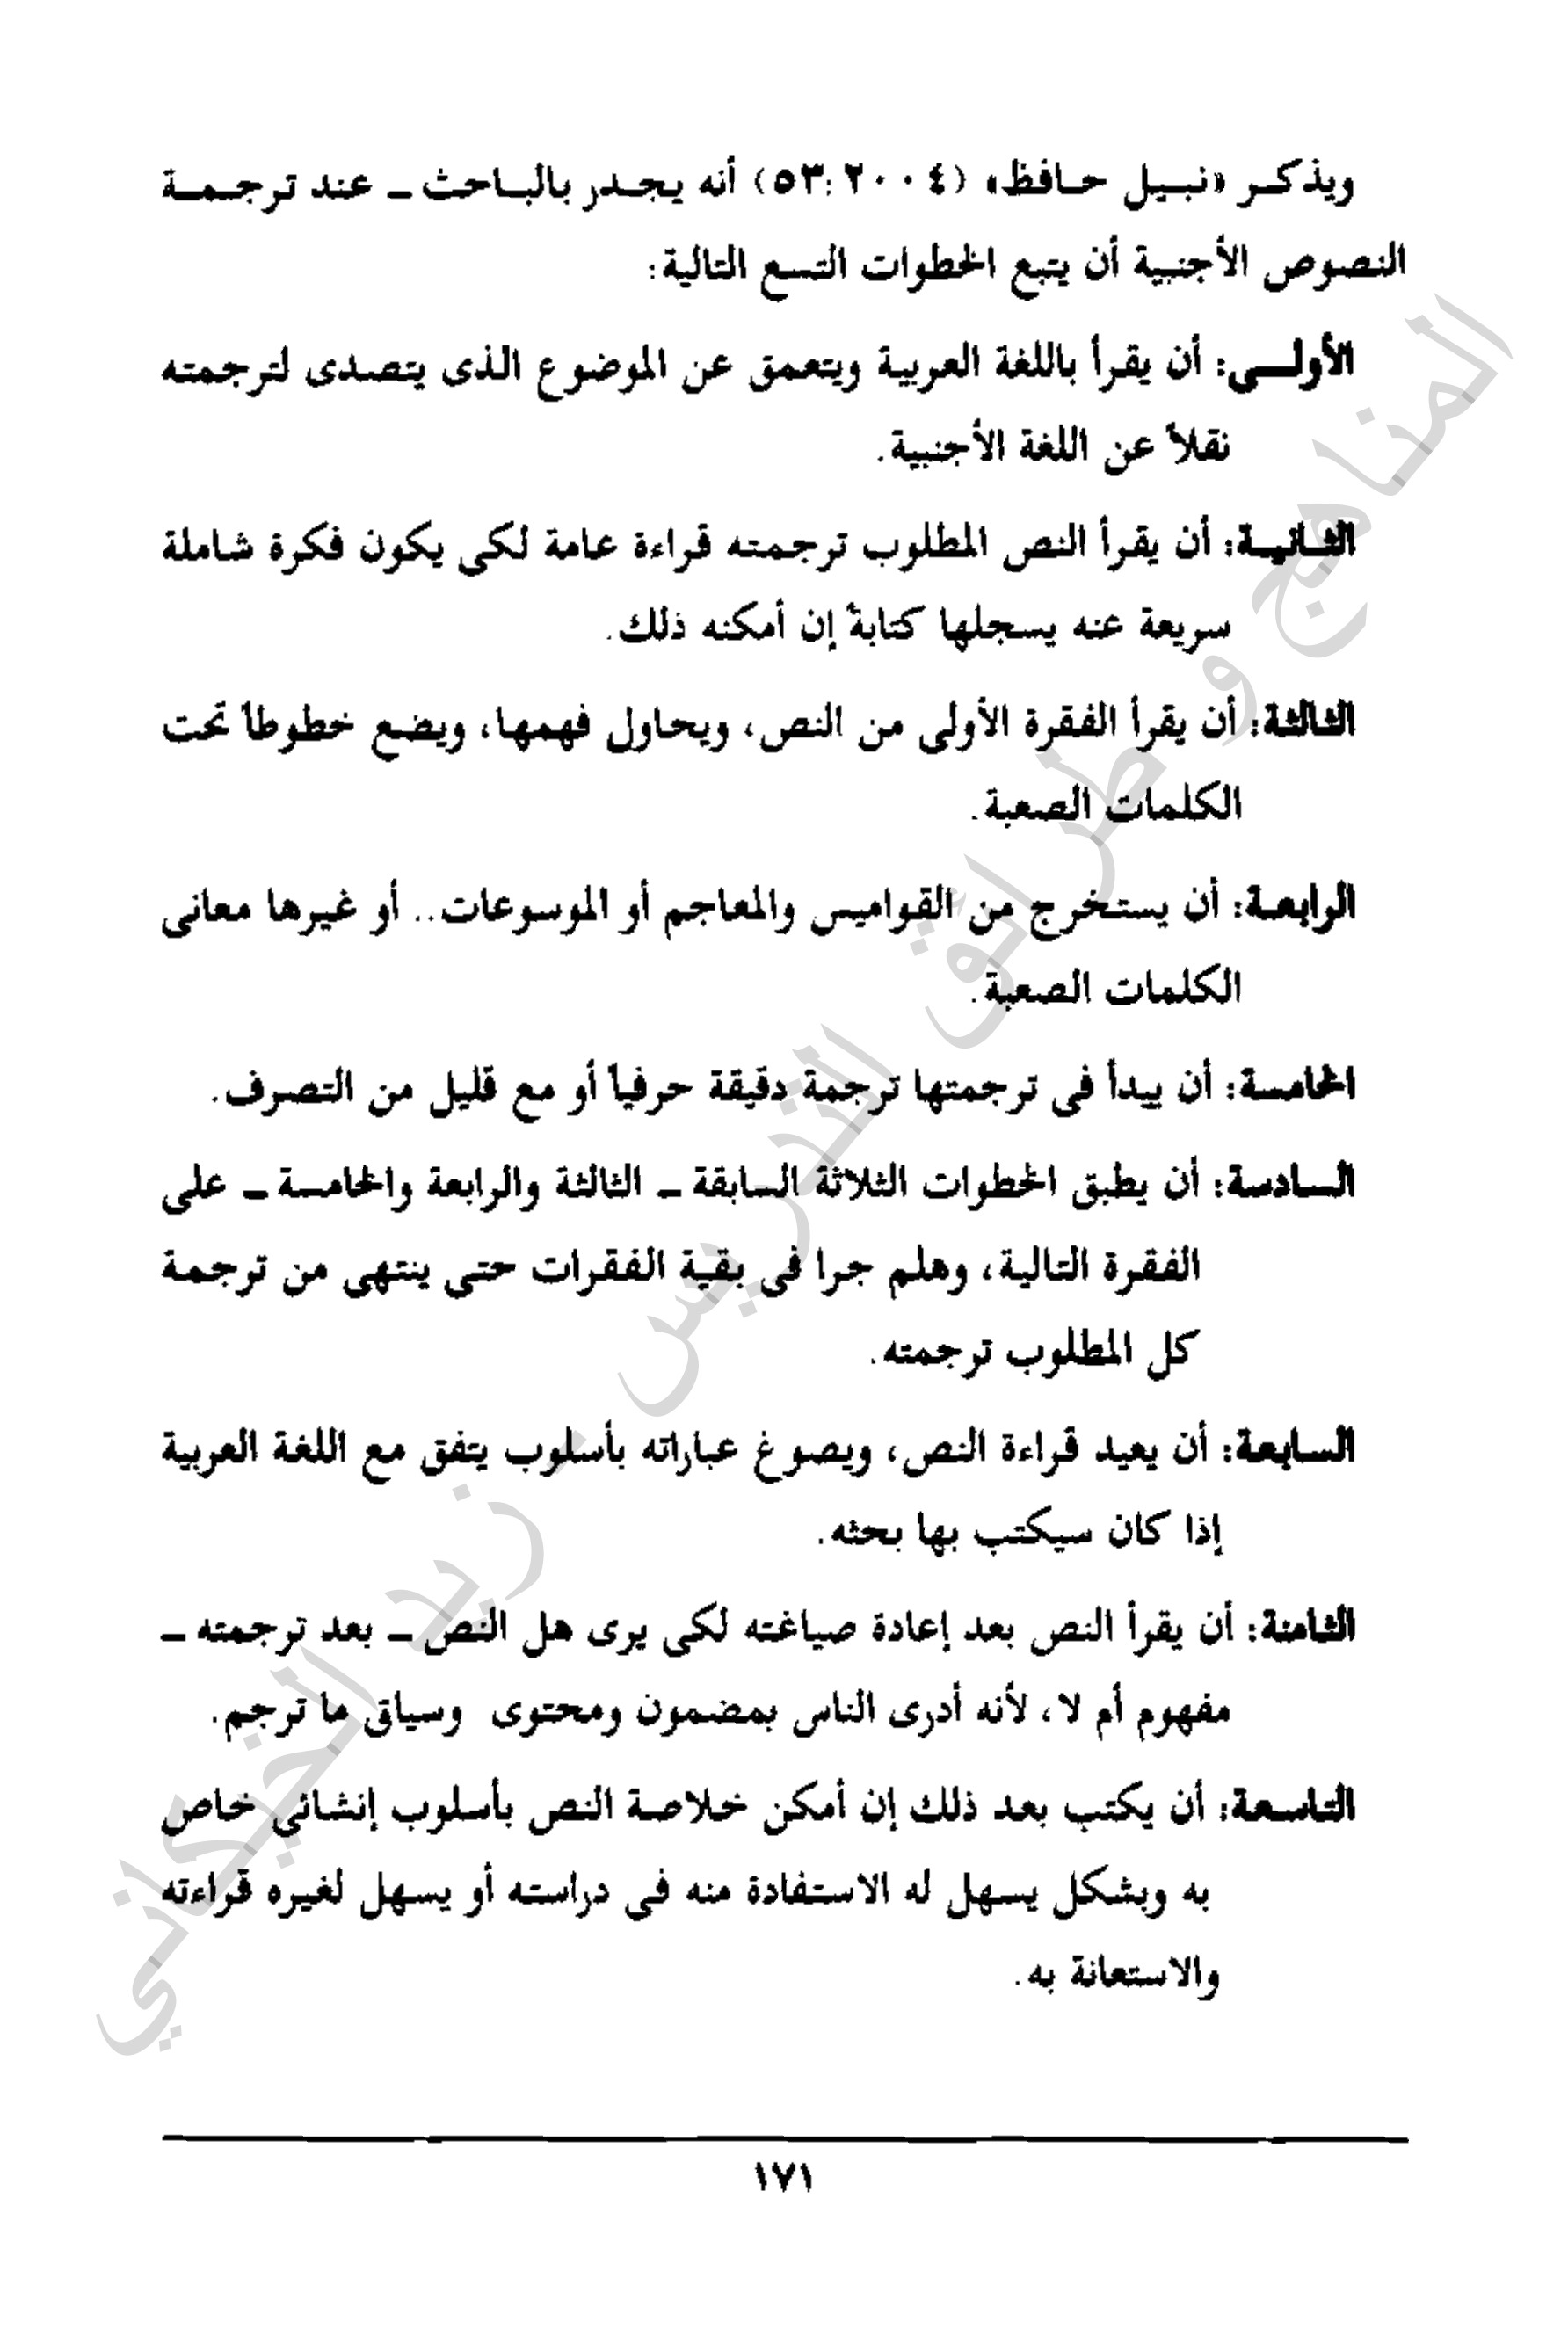 ويذكر «نبيل حافظ» (٢٠٠٤ :٥٣) أنه يجدر بالباحث ـ عند ترجمة
النصوص الأجنبية أن يتبع الخطوات التسع التالية:
الأولى: أن يقرأ باللغة العربية ويتعمق عن الموضوع الذى يتصدى لترجمته
نقلاً عن اللغة الأجنبية.
الثانية: أن يقرأ النص المطلوب ترجمته قراءة عامة لكى يكون فكرة شاملة
سريعة عنه يسجلها كتابةً إن أمكنه ذلك.
الثالثة: أن يقرأ الفقرة الأولى من النص، ويحاول فهمها، ويضع خطوطاً تحت
الكلمات الصعبة.
الرابعة: أن يستخرج من القواميس والمعاجم أو الموسوعات.. أو غيرها معانى
الكلمات الصعبة.
الخامسة: أن يبدأ فى ترجمتها ترجمة دقيقة حرفياً أو مع قليل من التصرف.
السادسة: أن يطبق الخطوات الثلاثة السابقة ـ الثالثة والرابعة والخامسة ـ على
الفقرة التالية، وهلم جرا فى بقية الفقرات حتى ينتهى من ترجمة
كل المطلوب ترجمته.
السابعة: أن يعيد قراءة النص، ويصوغ عباراته بأسلوب يتفق مع اللغة العربية
إذا كان سيكتب بها بحثه.
الثامنة: أن يقرأ النص بعد إعادة صياغته لكى يرى هل النص ـ بعد ترجمته ـ
مفهوم أم لا، لأنه أدرى الناس بمضمون ومحتوى وسياق ما ترجم.
التاسعة: أن يكتب بعد ذلك إن أمكن خلاصة النص بأسلوب إنشائى خاص
به وبشكل يسهل له الاستفادة منه فى دراسته أو يسهل لغيره قراءته
والاستعانة به.
١٧١
المناهج و طرائق التدريس - زيد الخيكاني